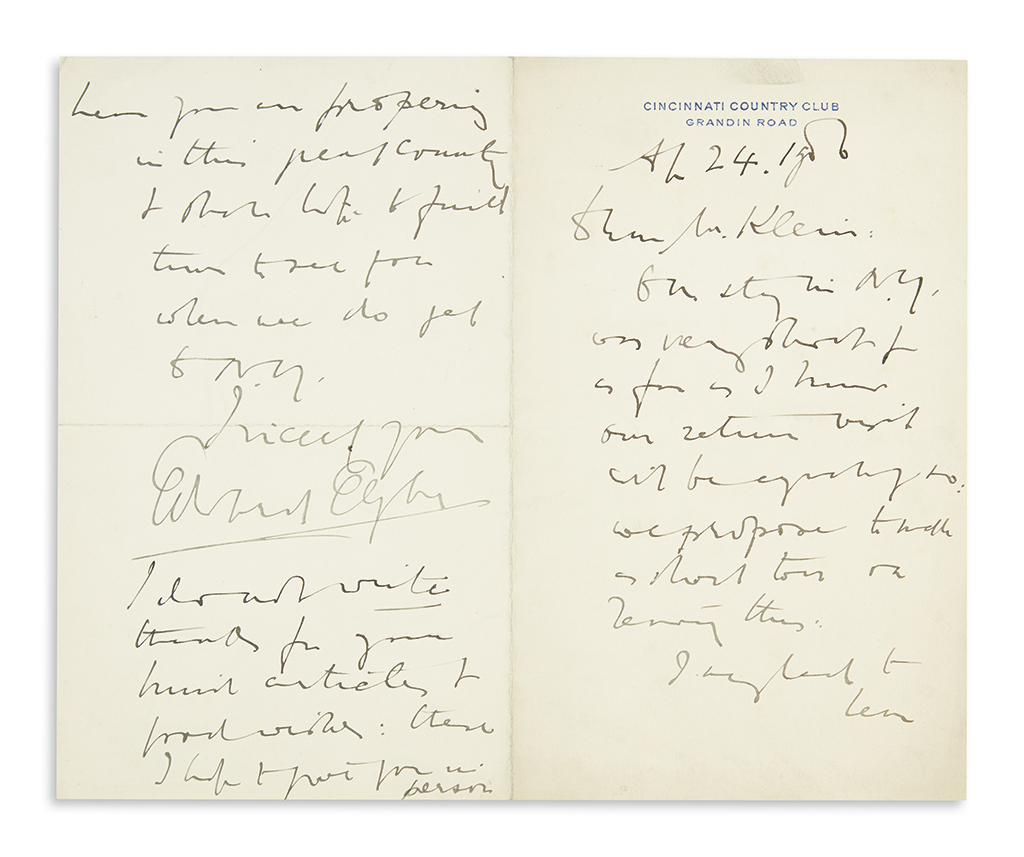 CINCINNATI COUNTRY CLUB
GRANDIN ROAD
Ap 24. 1906
Dear Mr. Klein:
Our stay in N.Y.
was very short &
as far as I know
our return visit
will be equally so:
we propose to make
a short tour on
leaving this.
I am glad to
hear
hear you are prospering
in this great Country
& shall hope to find
time to see you
when we do get
to N.Y.
Sincerely yours
Edward Elgar
I do not write
thanks for your
kind articles &
good wishes: these
I hope to give you in
person